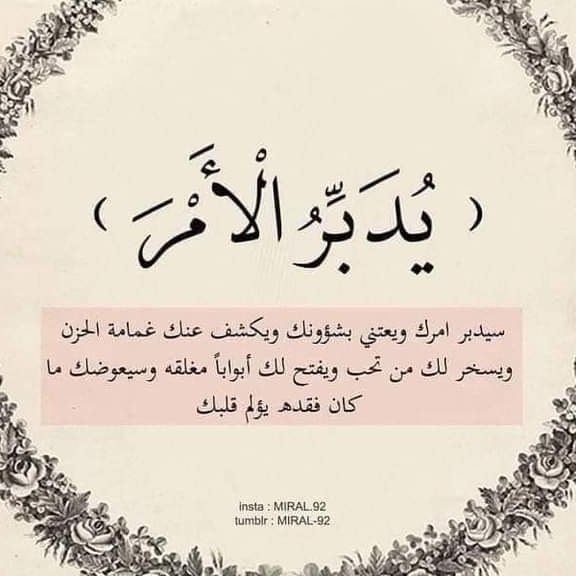 ( يُدَبِّرُ الْأَمْرَ )
سيدبر امرك ويعتني بشؤونك ويكشف عنك غمامة الحزن
ويسخر لك من تحب ويفتح لك أبواباً مغلقه وسيعوضك ما
كان فقده يؤلم قلبك
insta : MIRAL.92
tumblr : MIRAL-92